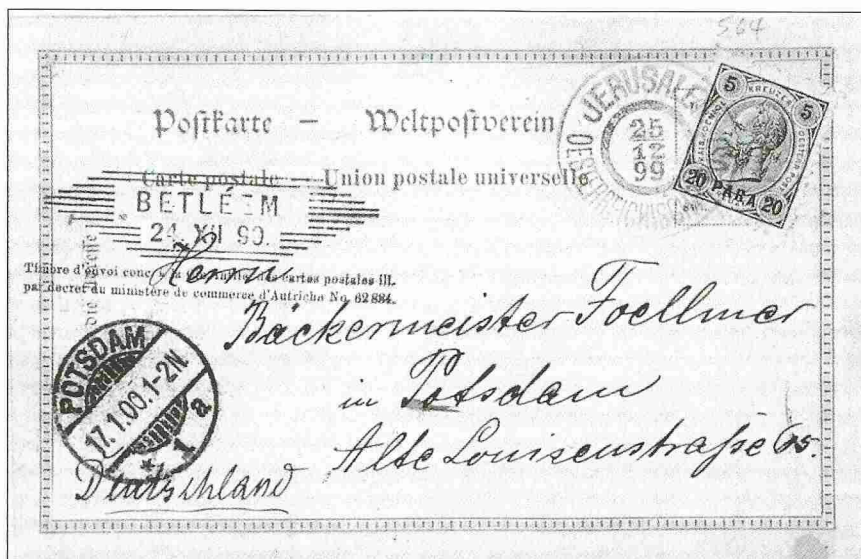 564
Postkarte – Weltpostverein
Carte postale Union postale universelle
JERUSALEM
25
12
99
OESTERREICHISCHE
5 KREUZER 5
20 PARA 20
BETLÉEM
24. XII 99.
Herrn
Timbre d'envoi conc. à la des cartes postales ill.
par decret du ministère de commerce d'Autriche No. 62884.
Bäckermeister Foellmer
in Potsdam
Alte Louisenstraße 65.
Deutschland
POTSDAM
17.1.00.1-2N
* 1 a.